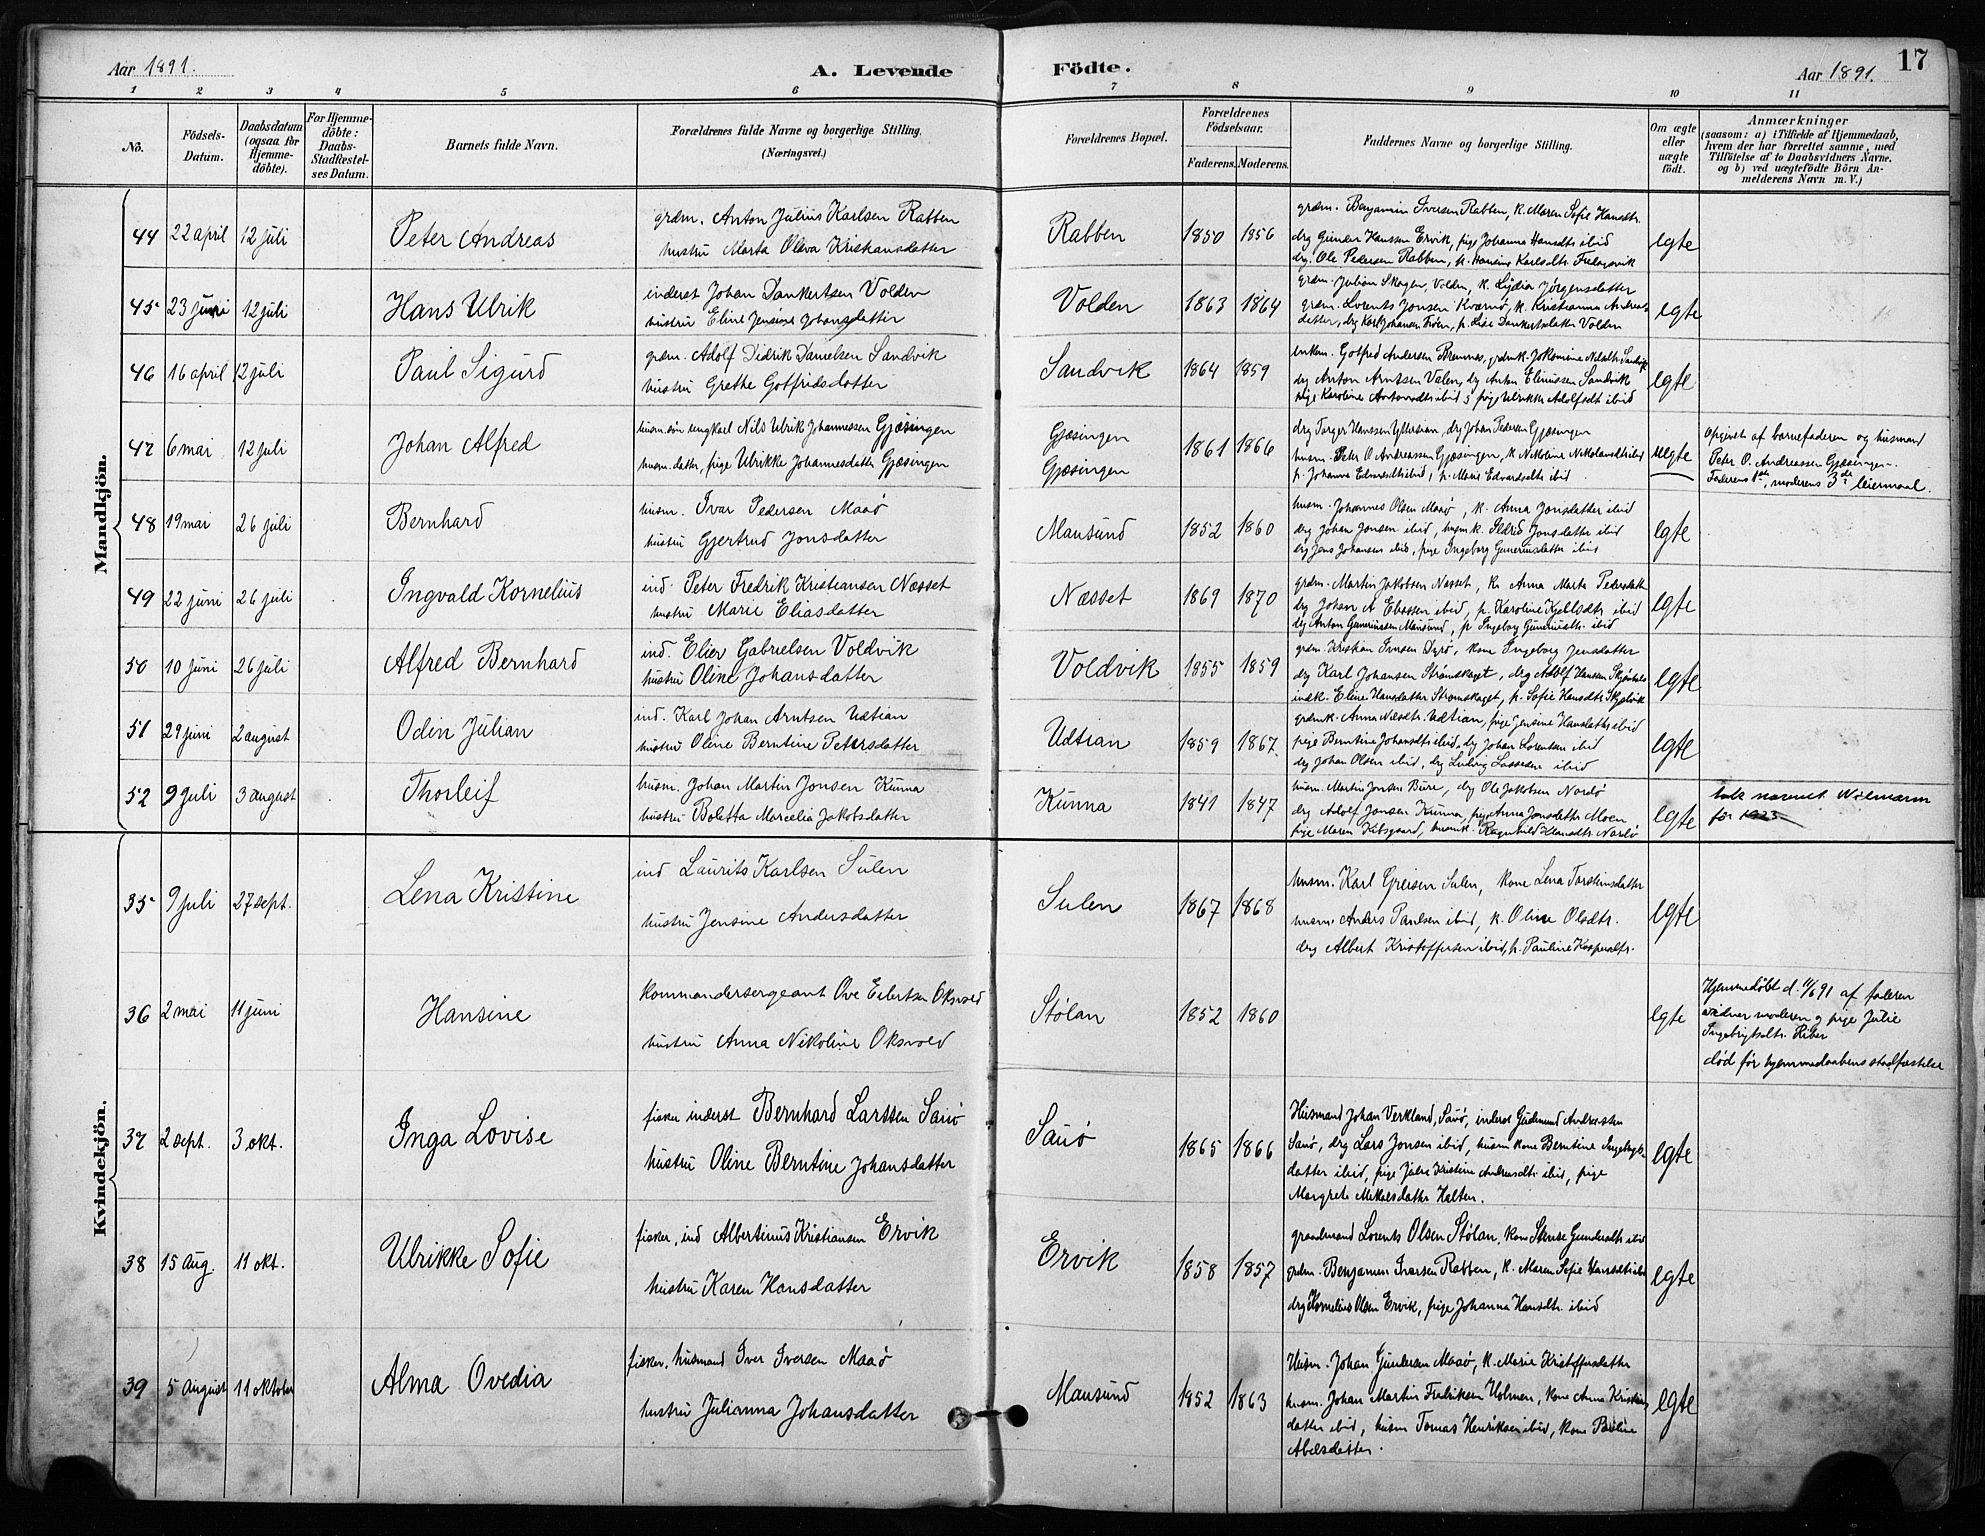 Aar 1891.
A. Levende Födte.
Aar 1891.
17
1 2 3 4 5 6 7 8 9 10 11
No.
Födsels-
Datum.
Daabsdatum
(ogsaa for
Hjemme-
döbte).
For Hjemme-
döbte:
Daabs-
Stadfæstel-
ses Datum.
Barnets fulde Navn.
Forældrenes fulde Navne og borgerlige Stilling.
(Næringsvei.)
Forældrenes Bopæl.
Forældrenes
Födselsaar.
Faderens. Moderens.
Faddernes Navne og borgerlige Stilling.
Om ægte
eller
uægte
födt.
Anmærkninger
(saasom: a) i Tilfælde af Hjemmedaab,
hvem der har forrettet samme, med
Tilföielse af to Daabsvidners Navne.
og b) ved uægtefödte Börn An-
melderens Navn m. V.)
Mandkjön.
44 22 april 12 juli
Peter Andreas
grdm. Anton Julius Karlsen Rabben
hustru Marta Oleva Kristiansdatter
Rabben 1850 1856
grdm. Benjamin Iversen Rabben, k. Maren Sofie Hansdtr.
drg Gunder Hanssen Ervik, pige Johanna Hansdtr ibid
drg. Ole Pedersen Rabben, p. Hansine Karlsdtr
egte
45 23 juni 12 juli
Hans Ulrik
inderst Johan Dankertsen Volden
hustru Eline Jensine Johansdatter
Volden 1863 1864
grdm. Julian Skagen, Volden, k. Lydia Jørgensdatter
grdm. Lorents Jonsen Kværnø, k. Kristianna Andreas-
datter, drg Karl Johansen, p. Lise Dankertsdatter Volden
egte
46 16 april 12 juli
Paul Sigurd
grdm. Adolf Didrik Danielsen Sandvik
hustru Grethe Gotfridsdatter
Sandvik 1864 1859
enkem. Gotfred Andersen Bremnes, grdmk.
drg Anton Arntsen Valen, drg Anton Sandvik
pige Karoline Antonsdtr ibid, pige Ulrikke Adolfsdt ibid
egte
47 6 mai 12 juli
Johan Alfred
husm.søn ungkarl Nils Ulrik Johannessen Gjæsingen
husm.datter, pige Ulrikke Johannesdatter Gjæsingen
Gjæsingen
Gjæsingen
1861 1866
drg Torger Hanssen Ytterian, drg Johan Pedersen Gjæsingen
husm. Peter O Andreassen Gjæsingen, k Nikoline Nikolausdtr ibid
p. Johanna Edvardsdtr ibid, p. Marie Edvardsdtr ibid
uegte
Opgivet af barnefaderen og husmand
Peter O. Andreassen Gjæsingen.
Faderens 1ste, moderens 3de leiermaal.
48 19 mai 26 juli
Bernhard
husm. Ivar Pedersen Maaø
hustru Gjertrud Jonsdatter
Mausund 1852 1860
husm. Johannes Olsen Maaø, k. Anna Jonsdatter ibid
drg Johan Jonsen ibid, husmk. Sildrid Jonsdatter ibid
drg Jens Johansen ibid, pige Ingeborg Guneriusdatter ibid
egte
49 22 juni 26 juli
Ingvald Kornelius
ind. Peter Fredrik Kristiansen Næsset
hustru Marie Eliasdatter
Næsset 1869 1870
grdm. Martin Jakobsen Næsset, k. Anna Marta Pedersdatter
drg Johan A ibid, p. Karoline Kjellsdtr ibid
drg Anton Gunerinssen Mausund, p Ingeborg Guneriusdtr. ibid
egte
50 10 juni 26 juli
Alfred Bernhard
ind. Elier Gabrielsen Voldvik
hustru Oline Johansdatter
Voldvik 1855 1859
grdm. Kristian Iversen Dyrø, kone Ingeborg Jensdatter
drg Karl Johansen Strømskaget, drg Adolf Hansen
indk. Eline Hansdatter Strømskaget, p. Sofie Hansdtr
egte
51 29 juni 2 august
Odin Julian
ind. Karl Johan Arntsen Udtian
hustru Oline Berntine Petersdatter
Udtian 1859 1867
grdmk. Anna Nilsdtr. Udtian, pige Jensine Hansdatter ibid
pige Berntine Johansdtr ibid, drg Johan Lorentsen ibid
drg Johan Olsen ibid, drg Ludvig Lassesen ibid
egte
52 9 juli 3 august
Thorleif
husm. Johan Martin Jonsen Kunna
hustru Boletta Marcelia Jakobsdatter
Kunna 1841 1847
husm. Martin Jonsen Bure, drg Ole Jakobsen Nordø
drg Adolf Jonsen Kunna, pige Anna Jonsdatter Moen
pige Maren Kibsgaard, husmk. Ragnhild Nordø
egte
før 1923
Kvindekjön.
35 9 juli 27 sept.
Lena Kristine
ind Laurits Karlsen Sulen
hustru Jensine Andersdatter
Sulen 1867 1868
husm. Karl Greisen Sulen, kone Lena Torsteinsdatter
husm. Anders Paulsen ibid, k. Oline Olsdtr.
drg Albert Kristoffersen ibid, p. Pauline Kaspersdtr.
egte
36 2 mai 11 juni
Hansine
kommandersergeant Ove Eilertsen Oksvold
hustru Anna Nikoline Oksvold
Stølan 1852 1860
egte
Hjemmedøbt d. 11/6 91 af faderen
vidner moderen og pige Julie
Ingebrigtsdtr. Riber
død før hjemmedaabens stadfæstelse
37 2 sept. 3 okt.
Inga Lovise
fisker inderst Bernhard Larssen Sauø
hustru Oline Berntine Johansdatter
Sauø 1865 1866
Husmand Johan Verkland, Sauø, inderst Gudmund Andreassen
Sauø, drg Lars Jonsen ibid, husm kone Berntine Ingebrigts-
datter ibid, pige Julie Kristine Andreasdtr ibid, pige
Margrete Mikalsdatter Halten.
egte
38 15 Aug. 11 okt.
Ulrikke Sofie
fisker, ind Albertinus Kristiansen Ervik
hustru Karen Hansdatter
Ervik 1858 1857
graadmand Lorents Olsen Stølan, kone Stense Gundersdtr ibid
grdm. Benjamin Ivarsen Rabben, k. Maren Sofie Hansdtr ibid
drg Kornelius Olsen Ervik, pige Johanna Hansdtr. ibid
egte
39 5 August 11 oktober
Alma Ovedia
fisker, husmand Iver Iversen Maaø
hustru Julianna Johansdatter
Mausund 1852 1863
Husm. Johan Gundersen Maaø, k. Marie Kristoffersdatter
husm. Johan Martin Fredriksen Holmen, kone Anna Kristians
datter ibid, husm Tomas Henriksen ibid, kone Pauline
Abelsdatter.
egte